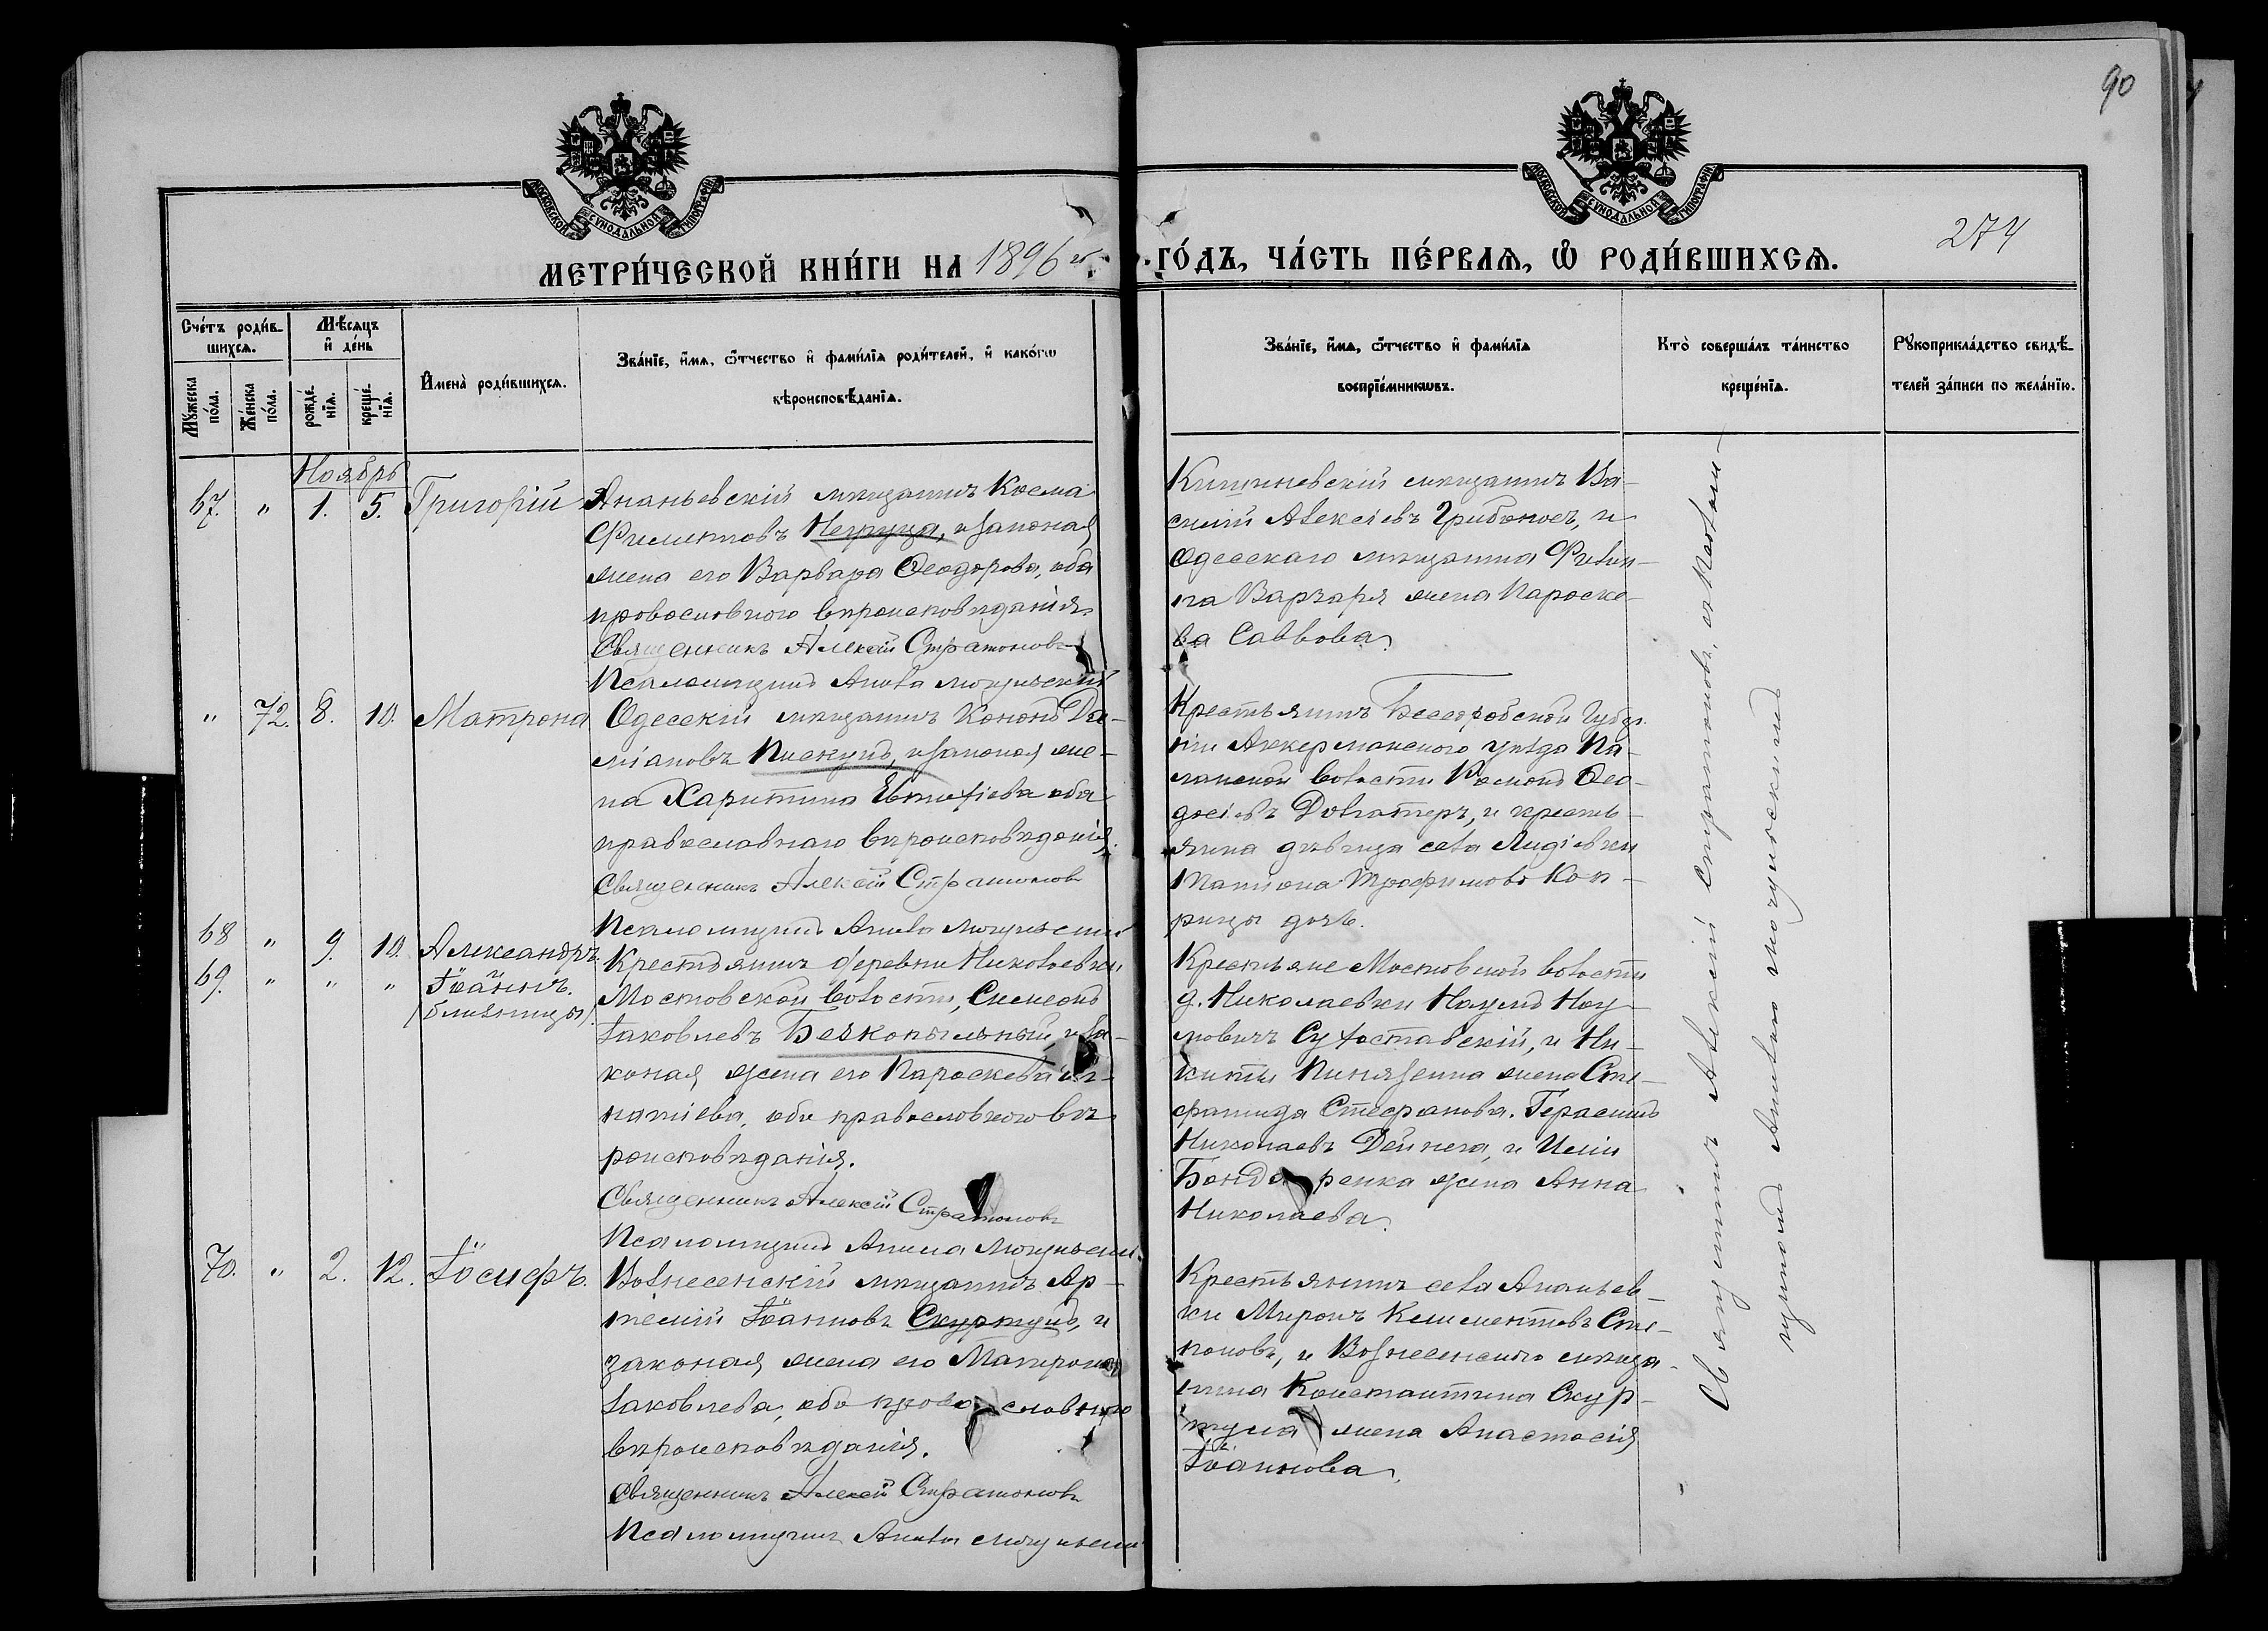 90
МОСКОВСКОЙ СУНОДАЛЬНОЙ ТИПОГРАФІИ
МОСКОВСКОЙ СУНОДАЛЬНОЙ ТИПОГРАФІИ
274
МЕТРИ́ЧЕСКОЙ КНИ́ГИ НА 1896 г. ГО́ДЪ, ЧА́СТЬ ПЕ́РВАѦ, Ѡ҆ РОДИ́ВШИХСѦ.
Сче́тъ роди́в-
шихсѧ.
Мꙋ́жеска по́ла.
Же́нска по́ла.
Мѣ́сѧцъ
и҆ де́нь
рожде́-
нїѧ.
креще́-
нїѧ.
И҆мена̀ роди́вшихсѧ.
Зва́нїе, и҆́мѧ, ѻ҆́тчество и҆ фами́лїѧ роди́телей, и҆ како́гѡ
вѣроисповѣ́данїѧ.
Зва́нїе, и҆́мѧ, ѻ҆́тчество и҆ фами́лїѧ
воспрїе́мникѡвъ.
Кто̀ соверша́лъ та́инство
креще́нїѧ.
Рꙋкоприкла́дство свидѣ́-
телей за́писи по жела́нїю.
Ноябрь
67. " 1. 5. Григорій
Ананьевскій мѣщанинъ Косма
Филиповъ Негруца, и законая
жена его Варвара Ѳеодорова, оба
православного вѣроисповѣданія.
Священникъ Алексій Стратоновъ
Псаломщикъ Акила
Кишиневскій мѣщанинъ Ва-
силій Алексіевъ Грибонос, и
Одесскаго мѣщанина Фили-
па Варзаря жена Параске-
ва Саввова.
" 72. 8. 10. Матрона
Одесскій мѣщанинъ Кононъ Да-
міановъ Пискунъ, и законая же-
на Харитина Евтихіева оба
православнаго вѣроисповѣданія.
Священникъ Алексій Стратоновъ
Псаломщикъ Акила
Крестьянинъ Бессарабской Губер.
ніи Аккерманского уѣзда Па-
ланской волости Ѳео-
досіевъ и кресть-
янка дѣвица села
Татіана Трофимова Коп-
рицы дочь.
68 " 9. 10. Александръ.
69. " " " Іоаннъ.
(близнецы).
Крестьянинъ деревни Николаевки
Мостовской волости, Симеонъ
Іаковлевъ Безкопыльный и за-
коная жена его Параскева Иг-
натіева, оба православного вѣ-
роисповѣданія.
Священникъ Алексій Стратоновъ
Псаломщикъ Акила
Крестьяне Мостовской волости
д. Николаевки Наумъ Нау-
мовичъ Сухоставскій, и Ни-
киты жена Сте-
фанида Стефанова. Герасимъ
Николаевъ Дейнега, и Иліи
Бондаренка жена Анна
Николаева.
70. " 2. 12. Іосифъ.
Вознесенскій мѣщанинъ Ар-
темій Іоанновъ Скуртулъ, и
законая жена его Матрона
Іаковлева, оба православнаго
вѣроисповѣданія.
Священникъ Алексій Стратоновъ
Псаломщикъ Акила
Крестьянинъ села Ананьев-
ки Миронъ Климентовъ Сте-
пановъ, и Вознесенского мѣща-
нина Константина Скур-
тула жена Анастасія
Іоаннова.
Священникъ Алексій Стратоновъ, съ псалом-
щикомъ Акилою